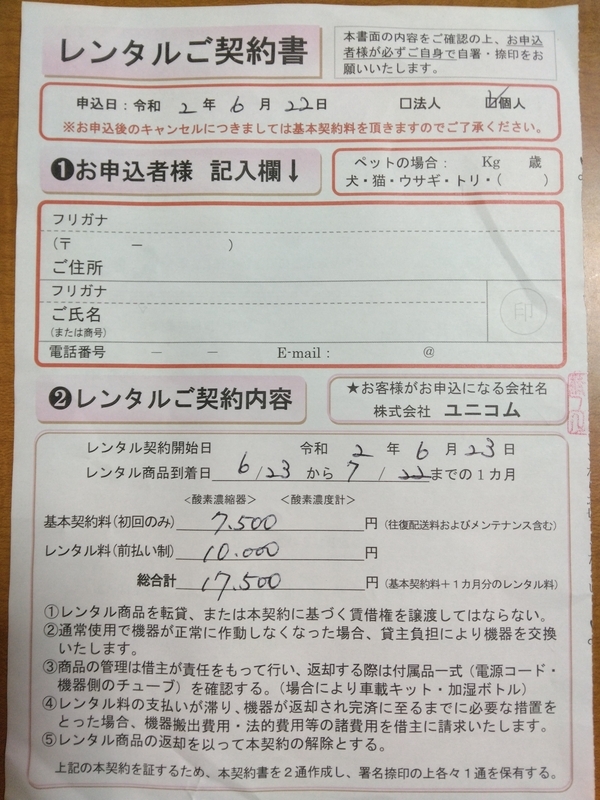 レンタルご契約書
本書面の内容をご確認の上、お申込
者様が必ずご自身で自署・捺印をお
願いいたします。
申込日：令和 2 年 6 月 22 日 □法人 ☑個人
※お申込後のキャンセルにつきましては基本契約料を頂きますのでご了承ください。
❶お申込者様 記入欄↓
ペットの場合： Kg 歳
犬・猫・ウサギ・トリ・( )
フリガナ
(〒 － )
ご住所
フリガナ
ご氏名
(または商号)
印
電話番号 － － E-mail： @
❷レンタルご契約内容
★お客様がお申込になる会社名
株式会社 ユニコム
レンタル契約開始日 令和 2 年 6 月 23 日
レンタル商品到着日 6/23 から 7/22 までの１カ月
<酸素濃縮器> <酸素濃度計>
基本契約料(初回のみ) 7.500 円 (往復配送料およびメンテナンス含む)
レンタル料(前払い制) 10.000 円
総合計 17.500 円 (基本契約料＋１カ月分のレンタル料)
①レンタル商品を転貸、または本契約に基づく賃借権を譲渡してはならない。
②通常使用で機器が正常に作動しなくなった場合、貸主負担により機器を交換
いたします。
③商品の管理は借主が責任をもって行い、返却する際は付属品一式（電源コード・
機器側のチューブ）を確認する。（場合により車載キット・加湿ボトル）
④レンタル料の支払いが滞り、機器が返却され完済に至るまでに必要な措置を
とった場合、機器搬出費用・法的費用等の諸費用を借主に請求いたします。
⑤レンタル商品の返却を以って本契約の解除とする。
上記の本契約を証するため、本契約書を２通作成し、署名捺印の上各々１通を保有する。